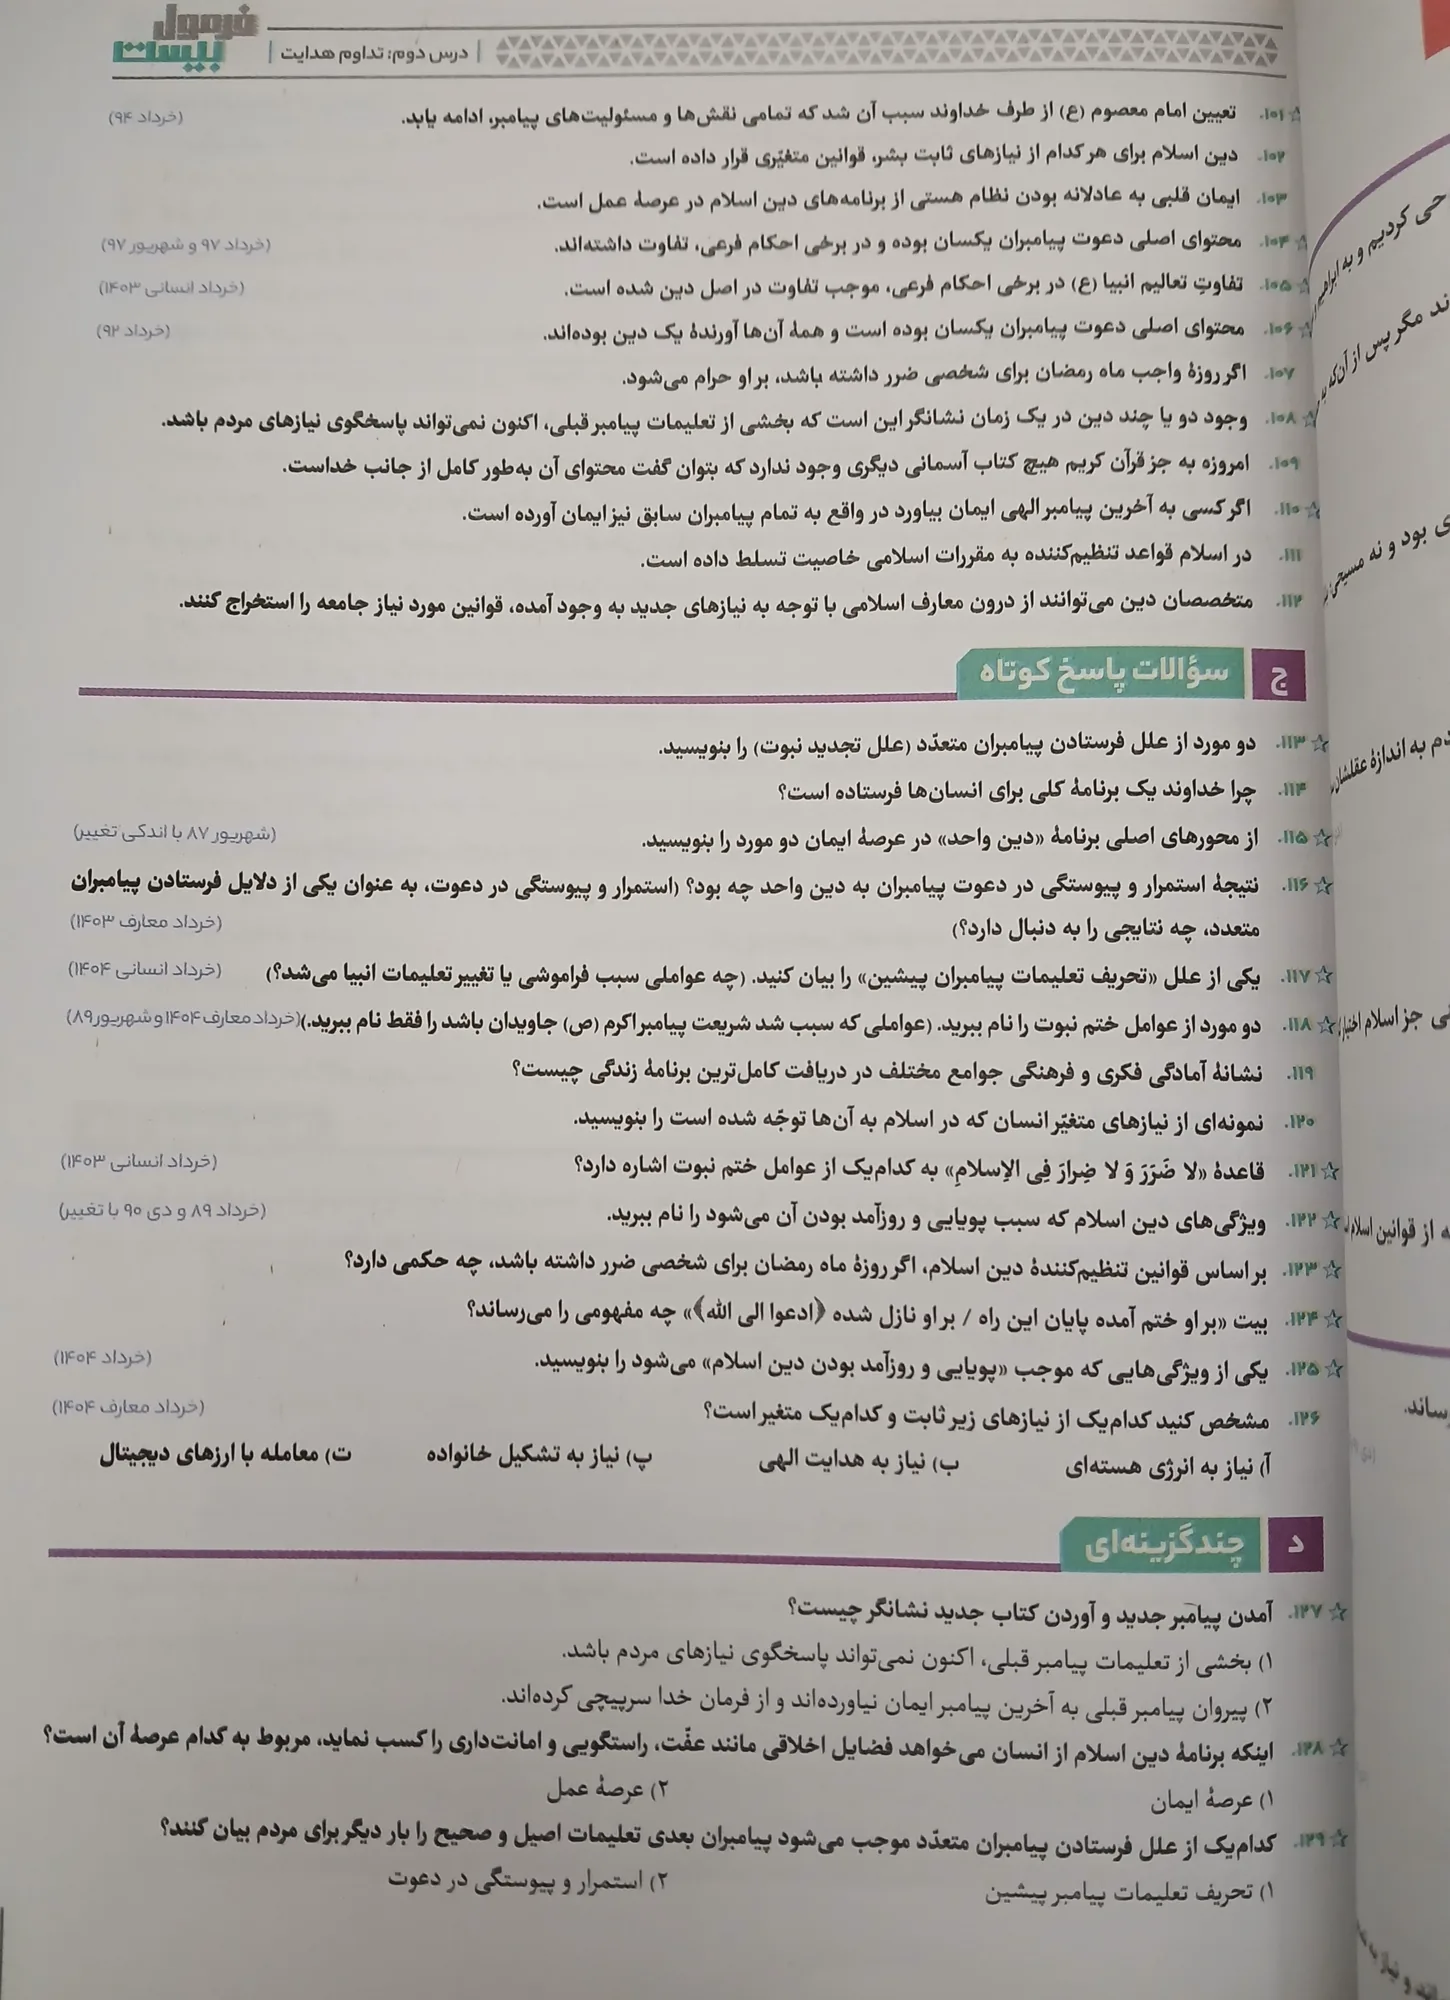 فرمول بیست
درس دوم: تداوم هدایت
۱۰۱. تعیین امام معصوم (ع) از طرف خداوند سبب آن شد که تمامی نقش‌ها و مسئولیت‌های پیامبر، ادامه یابد. (خرداد ۹۴)
۱۰۲. دین اسلام برای هر کدام از نیازهای ثابت بشر، قوانین متغیّری قرار داده است.
۱۰۳. ایمان قلبی به عادلانه بودن نظام هستی از برنامه‌های دین اسلام در عرصهٔ عمل است.
۱۰۴. محتوای اصلی دعوت پیامبران یکسان بوده و در برخی احکام فرعی، تفاوت داشته‌اند. (خرداد ۹۷ و شهریور ۹۷)
۱۰۵. تفاوتِ تعالیم انبیا (ع) در برخی احکام فرعی، موجب تفاوت در اصل دین شده است. (خرداد انسانی ۱۴۰۳)
۱۰۶. محتوای اصلی دعوت پیامبران یکسان بوده است و همهٔ آن‌ها آورندهٔ یک دین بوده‌اند. (خرداد ۹۲)
۱۰۷. اگر روزهٔ واجب ماه رمضان برای شخصی ضرر داشته باشد، بر او حرام می‌شود.
۱۰۸. وجود دو یا چند دین در یک زمان نشانگر این است که بخشی از تعلیمات پیامبر قبلی، اکنون نمی‌تواند پاسخگوی نیازهای مردم باشد.
۱۰۹. امروزه به جز قرآن کریم هیچ کتاب آسمانی دیگری وجود ندارد که بتوان گفت محتوای آن به‌طور کامل از جانب خداست.
۱۱۰. اگر کسی به آخرین پیامبر الهی ایمان بیاورد در واقع به تمام پیامبران سابق نیز ایمان آورده است.
۱۱۱. در اسلام قواعد تنظیم‌کننده به مقررات اسلامی خاصیت تسلط داده است.
۱۱۲. متخصصان دین می‌توانند از درون معارف اسلامی با توجه به نیازهای جدید به وجود آمده، قوانین مورد نیاز جامعه را استخراج کنند.
ج سؤالات پاسخ کوتاه
۱۱۳. دو مورد از علل فرستادن پیامبران متعدّد (علل تجدید نبوت) را بنویسید.
۱۱۴. چرا خداوند یک برنامهٔ کلی برای انسان‌ها فرستاده است؟
۱۱۵. از محورهای اصلی برنامهٔ «دین واحد» در عرصهٔ ایمان دو مورد را بنویسید. (شهریور ۸۷ با اندکی تغییر)
۱۱۶. نتیجهٔ استمرار و پیوستگی در دعوت پیامبران به دین واحد چه بود؟ (استمرار و پیوستگی در دعوت، به عنوان یکی از دلایل فرستادن پیامبران
متعدد، چه نتایجی را به دنبال دارد؟) (خرداد معارف ۱۴۰۳)
۱۱۷. یکی از علل «تحریف تعلیمات پیامبران پیشین» را بیان کنید. (چه عواملی سبب فراموشی یا تغییر تعلیمات انبیا می‌شد؟) (خرداد انسانی ۱۴۰۴)
۱۱۸. دو مورد از عوامل ختم نبوت را نام ببرید. (عواملی که سبب شد شریعت پیامبر اکرم (ص) جاویدان باشد را فقط نام ببرید.) (خرداد معارف ۱۴۰۴ و شهریور ۸۹)
۱۱۹. نشانهٔ آمادگی فکری و فرهنگی جوامع مختلف در دریافت کامل‌ترین برنامهٔ زندگی چیست؟
۱۲۰. نمونه‌ای از نیازهای متغیّر انسان که در اسلام به آن‌ها توجّه شده است را بنویسید.
۱۲۱. قاعدهٔ «لا ضَرَرَ وَ لا ضِرارَ فِی الإسلامِ» به کدام‌یک از عوامل ختم نبوت اشاره دارد؟ (خرداد انسانی ۱۴۰۳)
۱۲۲. ویژگی‌های دین اسلام که سبب پویایی و روزآمد بودن آن می‌شود را نام ببرید. (خرداد ۸۹ و دی ۹۰ با تغییر)
۱۲۳. بر اساس قوانین تنظیم‌کنندهٔ دین اسلام، اگر روزهٔ ماه رمضان برای شخصی ضرر داشته باشد، چه حکمی دارد؟
۱۲۴. بیت «بر او ختم آمده پایان این راه / بر او نازل شده ﴿ادعوا الی الله﴾» چه مفهومی را می‌رساند؟
۱۲۵. یکی از ویژگی‌هایی که موجب «پویایی و روزآمد بودن دین اسلام» می‌شود را بنویسید. (خرداد ۱۴۰۴)
۱۲۶. مشخص کنید کدام‌یک از نیازهای زیر ثابت و کدام‌یک متغیر است؟ (خرداد معارف ۱۴۰۴)
آ) نیاز به انرژی هسته‌ای ب) نیاز به هدایت الهی پ) نیاز به تشکیل خانواده ت) معامله با ارزهای دیجیتال
د چندگزینه‌ای
۱۲۷. آمدن پیامبر جدید و آوردن کتاب جدید نشانگر چیست؟
۱) بخشی از تعلیمات پیامبر قبلی، اکنون نمی‌تواند پاسخگوی نیازهای مردم باشد.
۲) پیروان پیامبر قبلی به آخرین پیامبر ایمان نیاورده‌اند و از فرمان خدا سرپیچی کرده‌اند.
۱۲۸. اینکه برنامهٔ دین اسلام از انسان می‌خواهد فضایل اخلاقی مانند عفّت، راستگویی و امانت‌داری را کسب نماید، مربوط به کدام عرصهٔ آن است؟
۱) عرصهٔ ایمان ۲) عرصهٔ عمل
۱۲۹. کدام‌یک از علل فرستادن پیامبران متعدّد موجب می‌شود پیامبران بعدی تعلیمات اصیل و صحیح را بار دیگر برای مردم بیان کنند؟
۱) تحریف تعلیمات پیامبر پیشین ۲) استمرار و پیوستگی در دعوت
حی کردیم و به ابراهیم
ند مگر پس از آن‌که به
ی بود و نه مسیحی
دم به اندازهٔ عقلشان
ی جز اسلام
ه از قوانین اسلام
رساند.